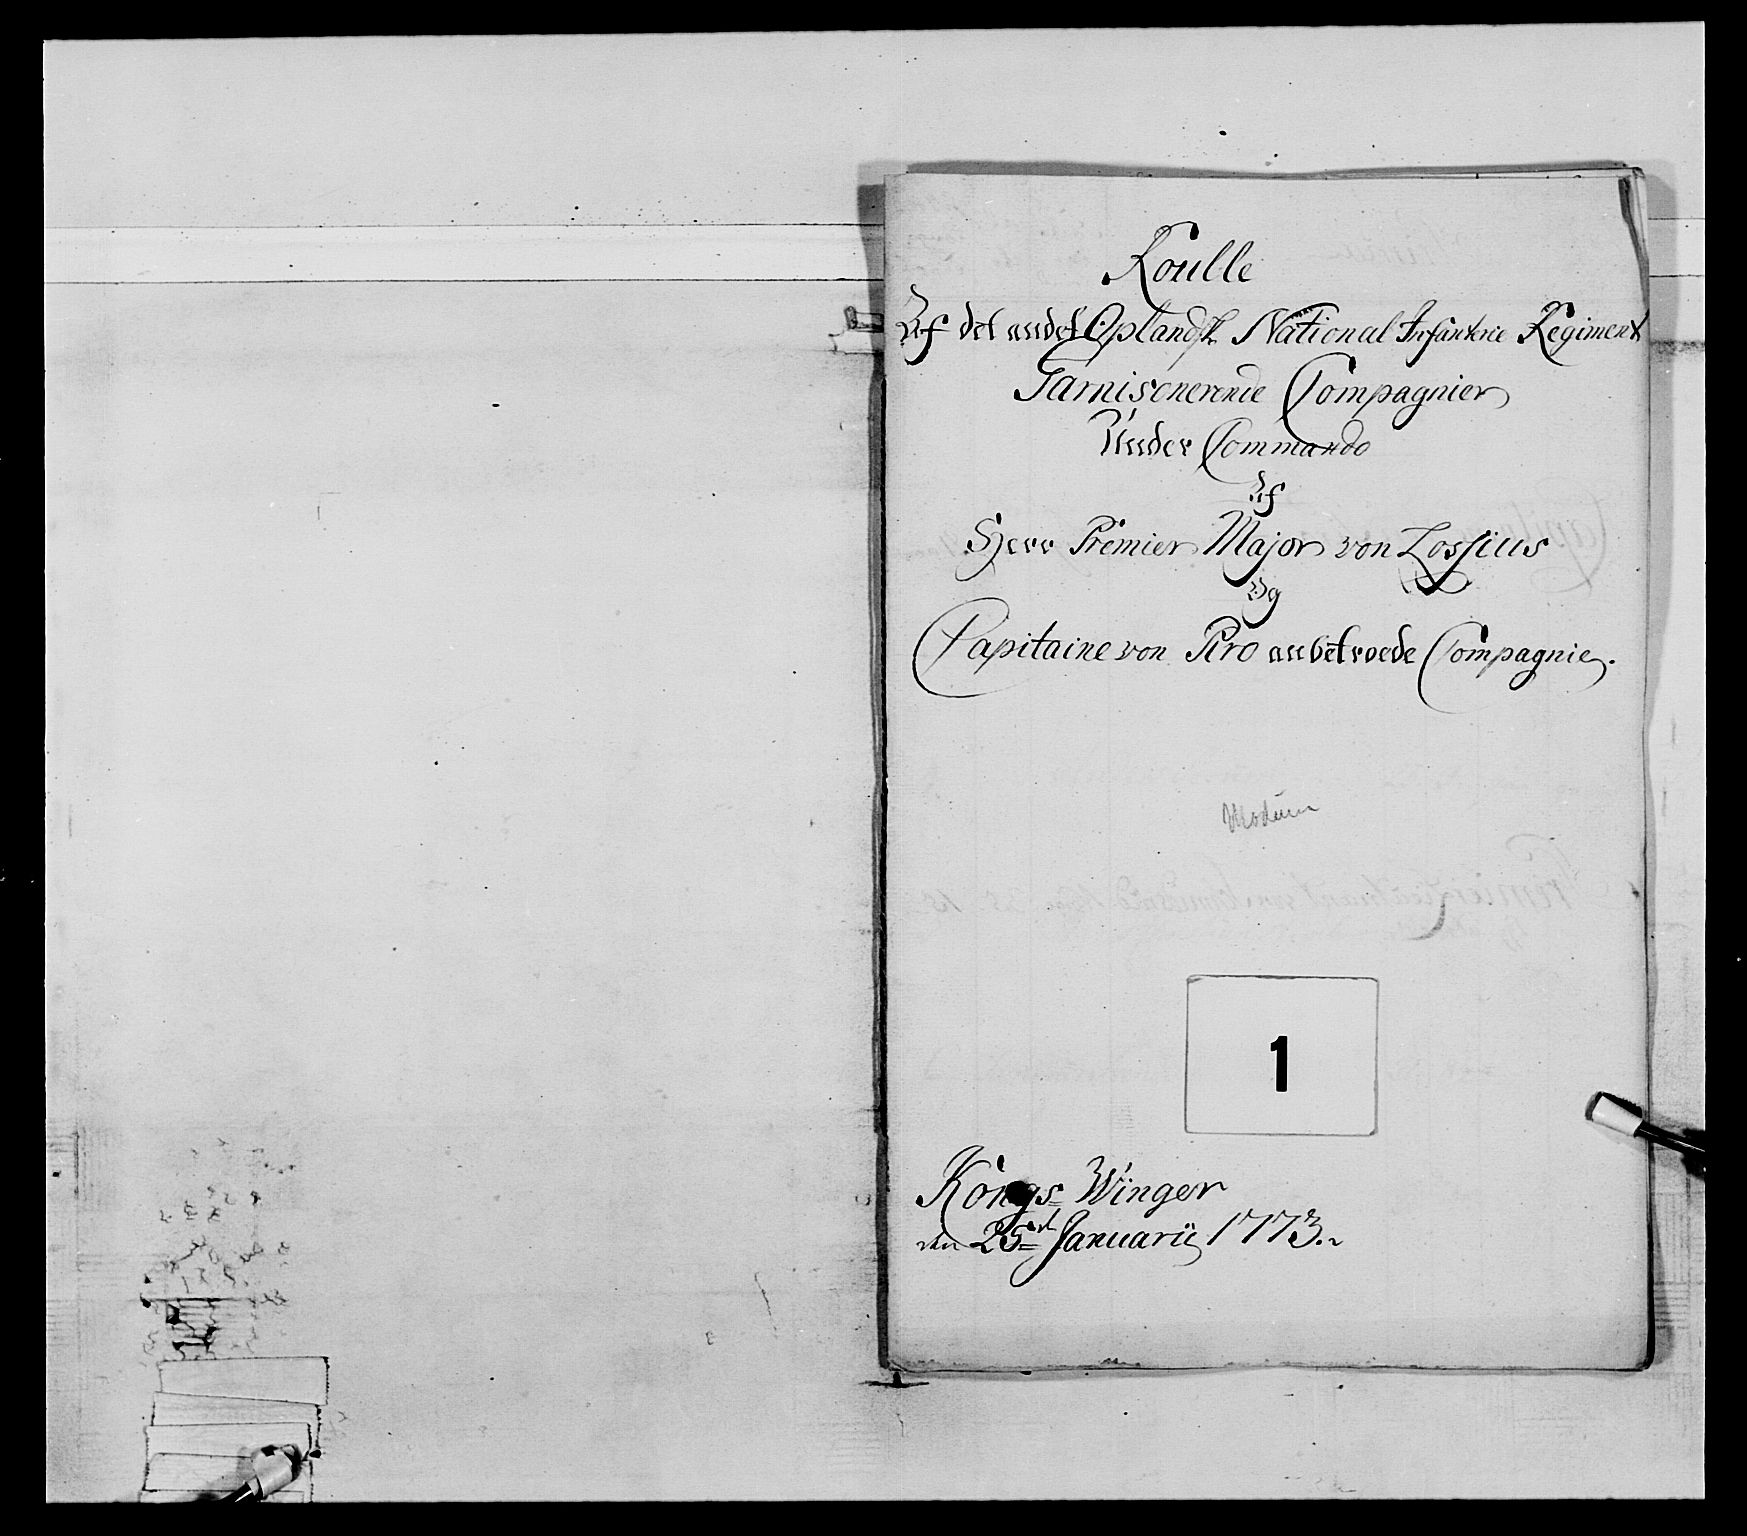 Roulle
Af det andet Oplandske National Infanterie Regiment
Garnisonerende Compagnier
Under Commando
Af
Herr Premier Major von Lossius
Og
Capitaine von Piro anbetroede Compagnie.
Modum
1
Kongs-Winger
den 25de Januarii 1773.